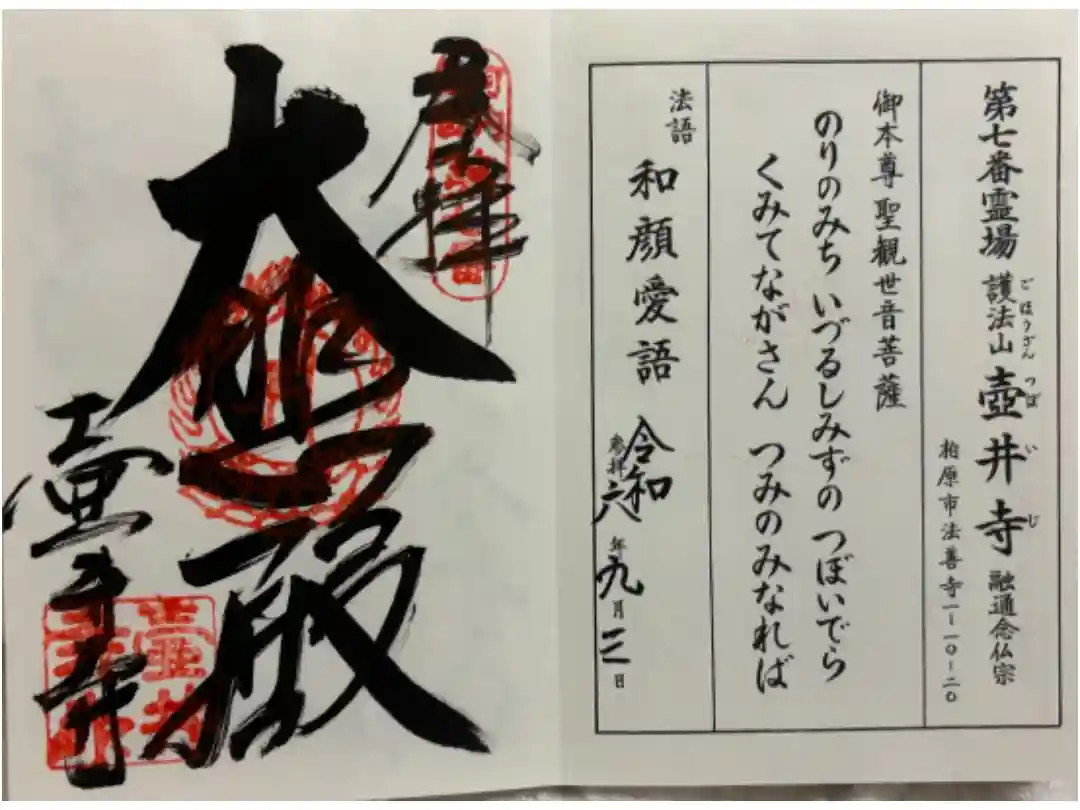 第七番霊場 護法山 壺井寺 融通念仏宗
ごほうざん つぼいじ
柏原市法善寺一ー一〇ー二〇
御本尊 聖観世音菩薩
のりのみち いづるしみずの つぼいでら
くみてながさん つみのみなれば
法語 和顔愛語
令和
参拝 六年九月三日
奉拝
大悲殿
壺井寺